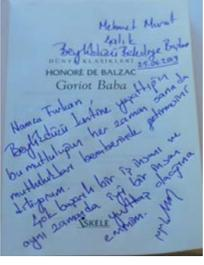 Mehmet Murat
Çalık
Beylikdüzü Belediye Başkanı
25.06.2019
DÜNYA KLASİKLERİ
HONORÉ DE BALZAC
Goriot Baba
Namıca Furkan
Beylikdüzü kentine yapıştığın
bu mutluluğun her zaman sana da
mutlulukları beraberinde getirmesini
diliyorum.
Çok başarılı bir iş insanı ve
aynı zamanda iyi bir insan
olacağına
eminim.
İSKELE